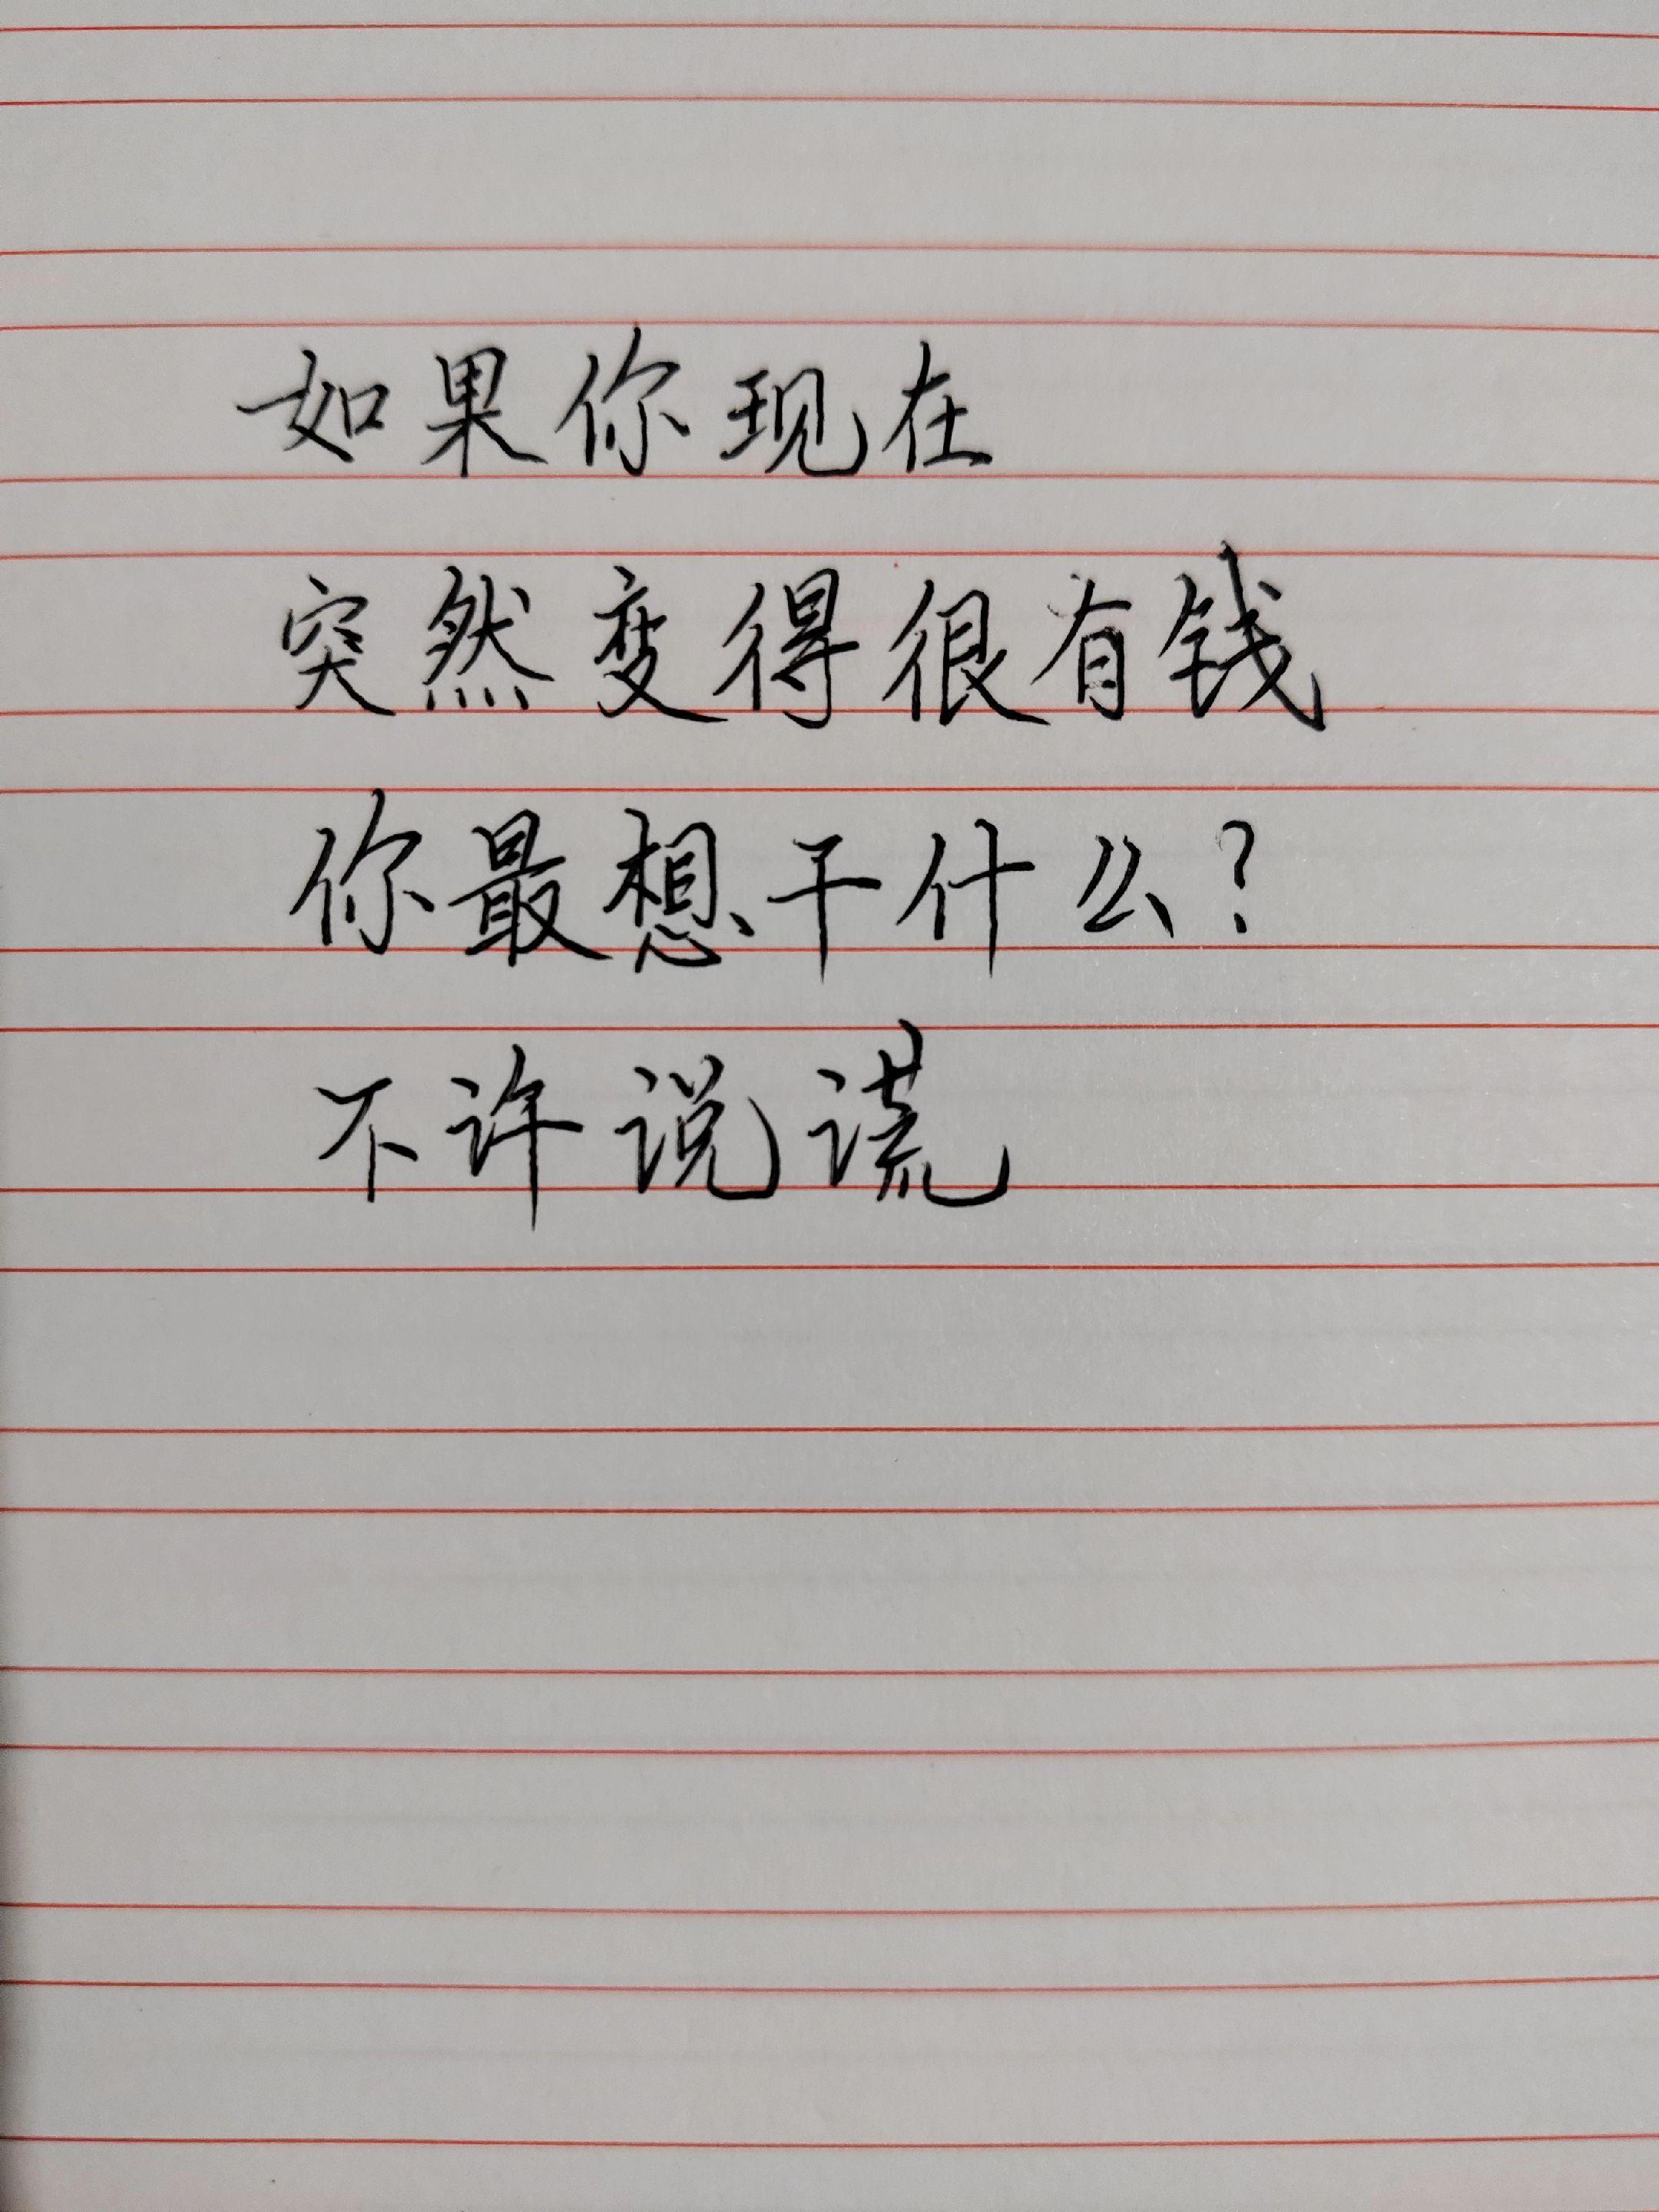 如果你现在
突然变得很有钱
你最想干什么?
不许说谎